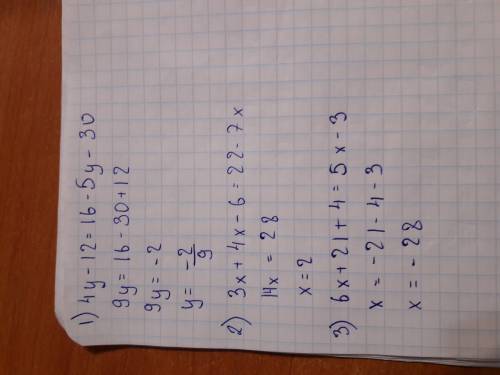 1) 4y - 12 = 16 - 5y - 30
9y = 16 - 30 + 12
9y = -2
y = -2/9
2) 3x + 4x - 6 = 22 - 7x
14x = 28
x = 2
3) 6x + 21 + 4 = 5x - 3
x = -21 - 4 - 3
x = - 28